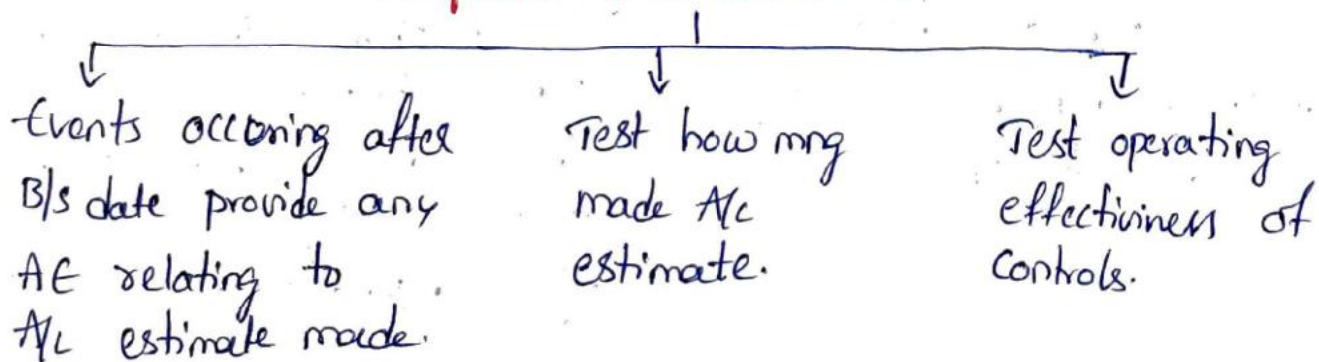 Events occoring after
B/s date provide any
AE relating to
A/c estimate made.
Test how mng
made A/c
estimate.
Test operating
effectiviness of
Controls.